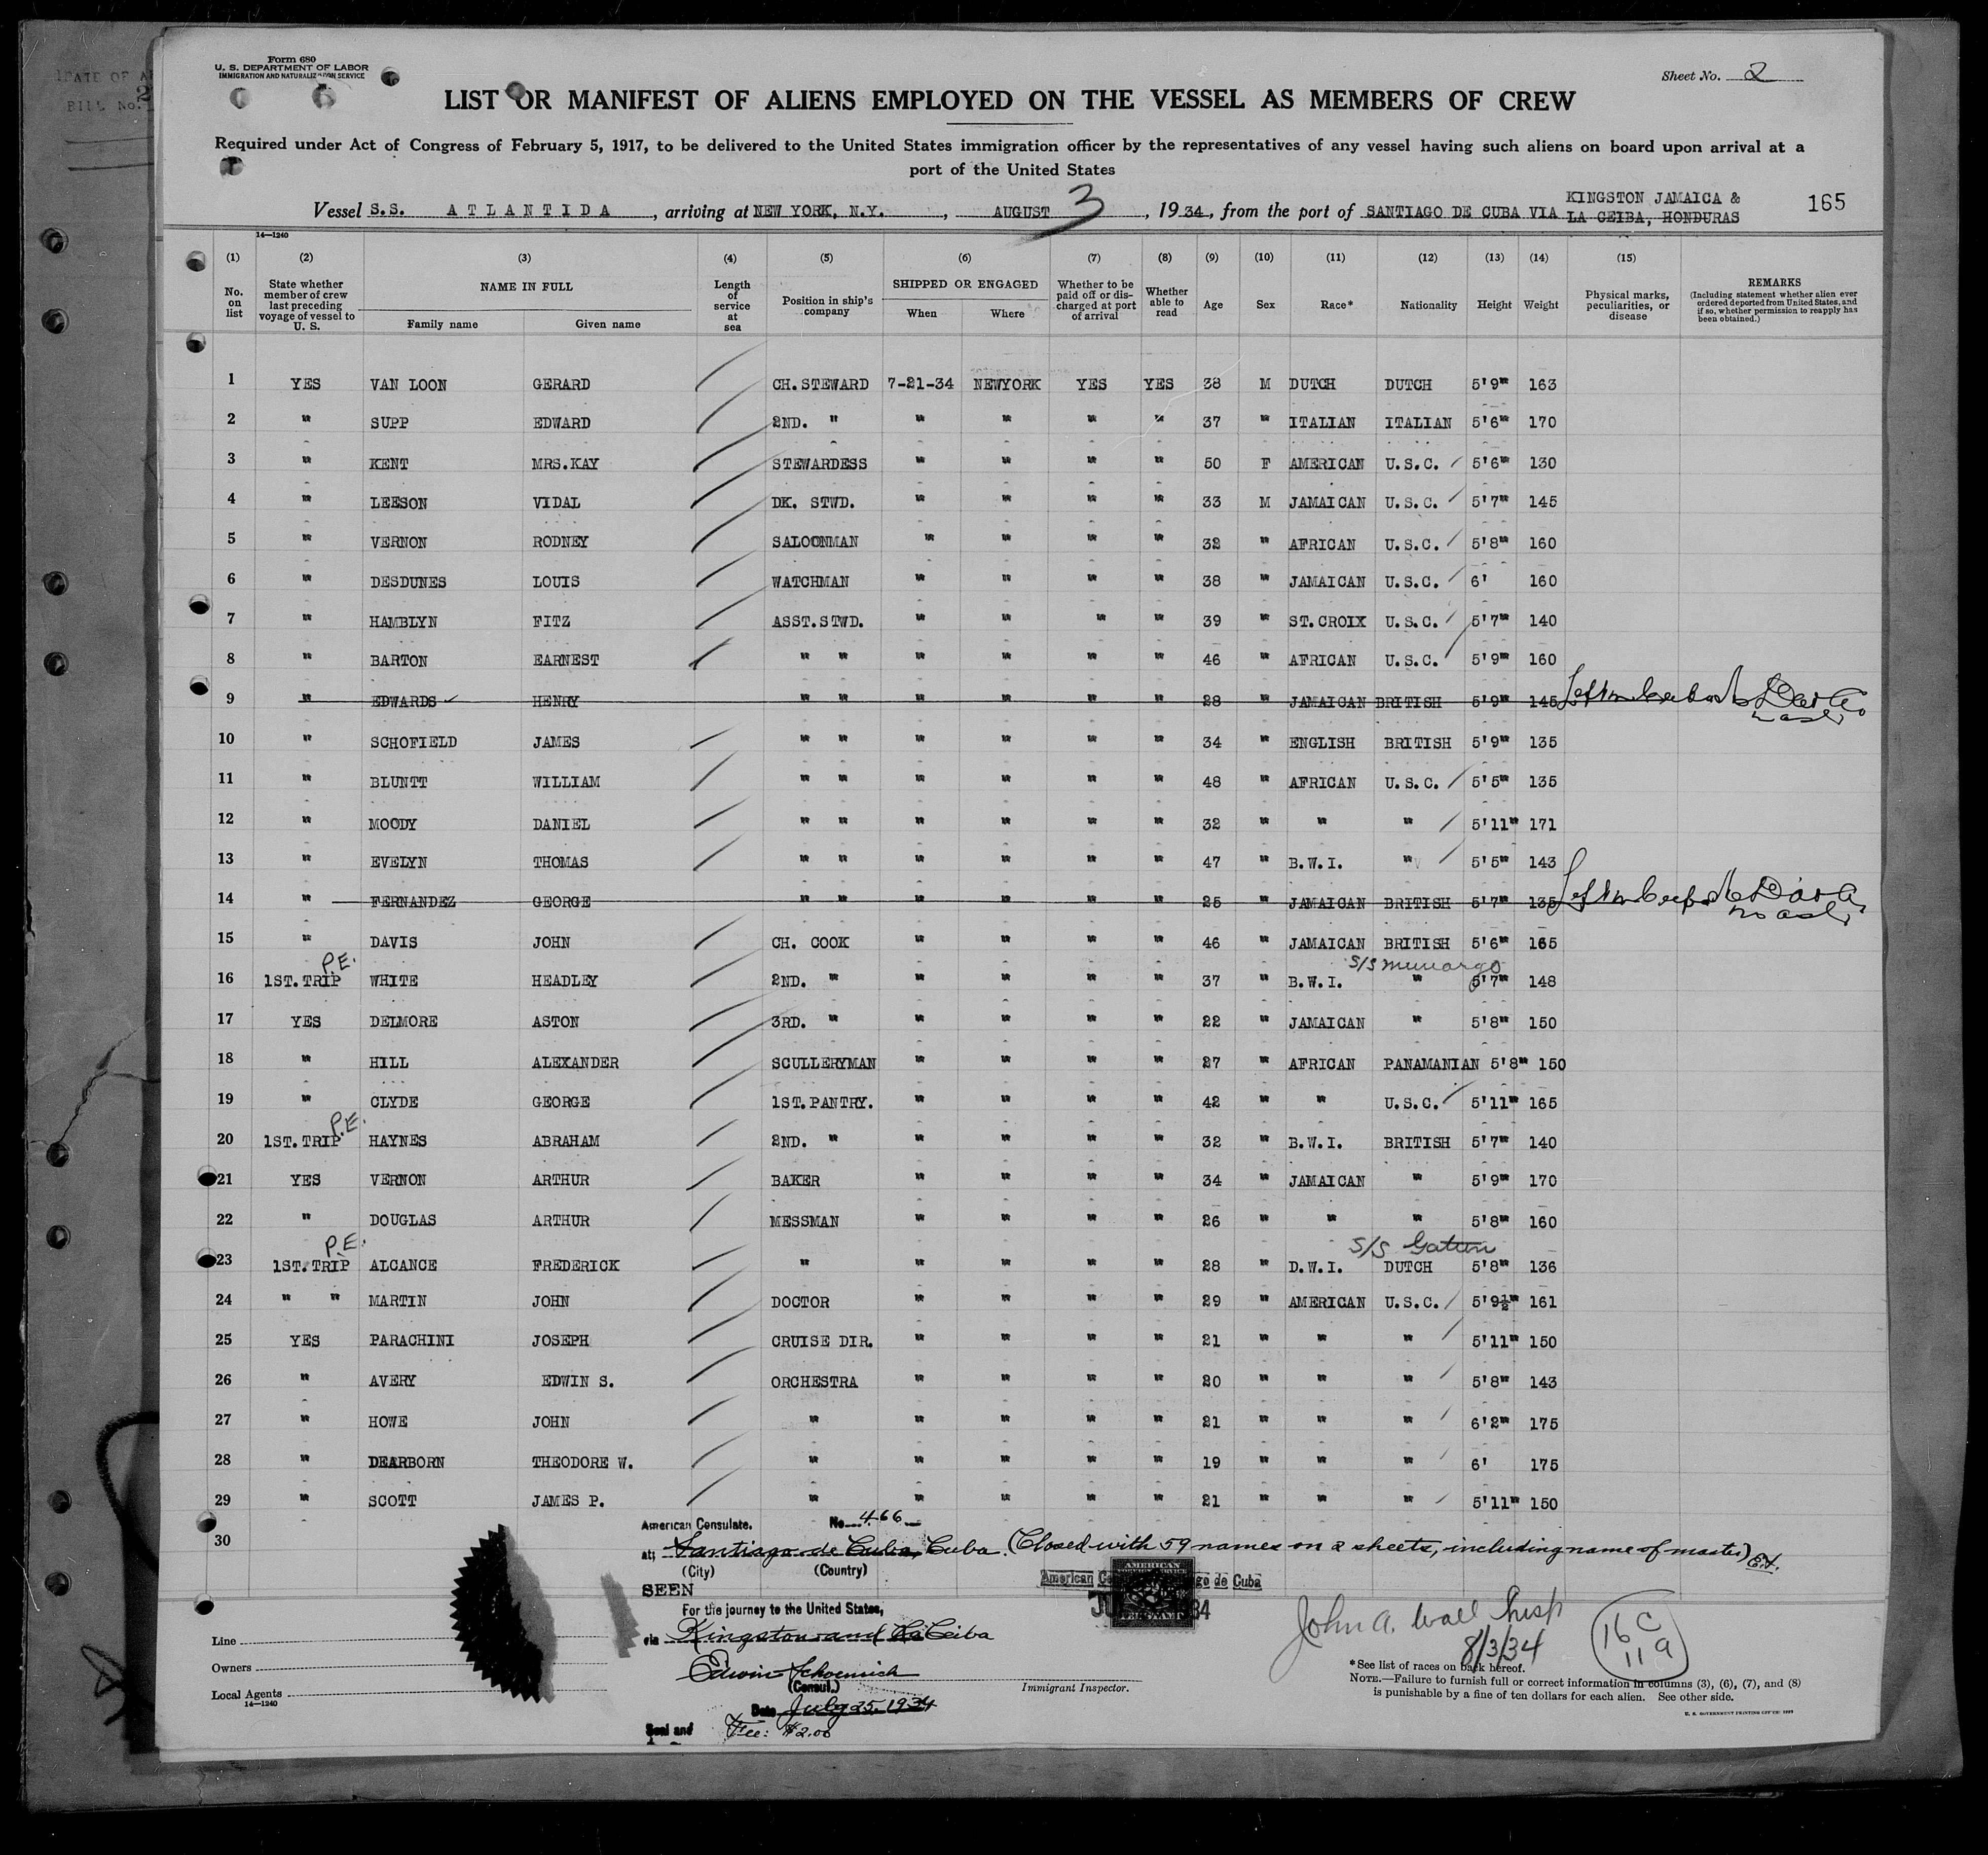 Form 680
U. S. DEPARTMENT OF LABOR
IMMIGRATION AND NATURALIZATION SERVICE
Sheet No. 2
LIST OR MANIFEST OF ALIENS EMPLOYED ON THE VESSEL AS MEMBERS OF CREW
Required under Act of Congress of February 5, 1917, to be delivered to the United States immigration officer by the representatives of any vessel having such aliens on board upon arrival at a
port of the United States
KINGSTON JAMAICA &
Vessel S.S. ATLANTIDA, arriving at NEW YORK, N.Y., AUGUST 3, 1934, from the port of SANTIAGO DE CUBA VIA LA CEIBA, HONDURAS
165
14—1240
(1) (2) (3) (4) (5) (6) (7) (8) (9) (10) (11) (12) (13) (14) (15)
No. on list
State whether member of crew last preceding voyage of vessel to U. S.
NAME IN FULL
Family name
Given name
Length of service at sea
Position in ship's company
SHIPPED OR ENGAGED
When
Where
Whether to be paid off or discharged at port of arrival
Whether able to read
Age
Sex
Race*
Nationality
Height
Weight
Physical marks, peculiarities, or disease
REMARKS
(Including statement whether alien ever ordered deported from United States, and if so, whether permission to reapply has been obtained.)
1 YES VAN LOON GERARD CH. STEWARD 7-21-34 NEWYORK YES YES 38 M DUTCH DUTCH 5'9" 163
2 " SUPP EDWARD 2ND. " " " " " 37 " ITALIAN ITALIAN 5'6" 170
3 " KENT MRS.KAY STEWARDESS " " " " 50 F AMERICAN U.S.C. 5'6" 130
4 " LEESON VIDAL DK. STWD. " " " " 33 M JAMAICAN U.S.C. 5'7" 145
5 " VERNON RODNEY SALOONMAN " " " " 32 " AFRICAN U.S.C. 5'8" 160
6 " DESDUNES LOUIS WATCHMAN " " " " 38 " JAMAICAN U.S.C. 6' 160
7 " HAMBLYN FITZ ASST.STWD. " " " " 39 " ST.CROIX U.S.C. 5'7" 140
8 " BARTON EARNEST " " " " " " 46 " AFRICAN U.S.C. 5'9" 160
9 " EDWARDS HENRY " " " " " " 28 " JAMAICAN BRITISH 5'9" 145
10 " SCHOFIELD JAMES " " " " " " 34 " ENGLISH BRITISH 5'9" 135
11 " BLUNTT WILLIAM " " " " " " 48 " AFRICAN U.S.C. 5'5" 135
12 " MOODY DANIEL " " " " " " 32 " " " 5'11" 171
13 " EVELYN THOMAS " " " " " " 47 " B.W.I. " 5'5" 143
14 " FERNANDEZ GEORGE " " " " " " 25 " JAMAICAN BRITISH 5'7" 135
15 " DAVIS JOHN CH. COOK " " " " 46 " JAMAICAN BRITISH 5'6" 165
P.E. S/S Munargo
16 1ST.TRIP WHITE HEADLEY 2ND. " " " " " 37 " B.W.I. " 5'7" 148
17 YES DELMORE ASTON 3RD. " " " " " 22 " JAMAICAN " 5'8" 150
18 " HILL ALEXANDER SCULLERYMAN " " " " 27 " AFRICAN PANAMANIAN 5'8" 150
19 " CLYDE GEORGE 1ST.PANTRY. " " " " 42 " " U.S.C. 5'11" 165
P.E.
20 1ST.TRIP HAYNES ABRAHAM 2ND. " " " " " 32 " B.W.I. BRITISH 5'7" 140
21 YES VERNON ARTHUR BAKER " " " " 34 " JAMAICAN " 5'9" 170
22 " DOUGLAS ARTHUR MESSMAN " " " " 26 " " " 5'8" 160
P.E. S/S Gatun
23 1ST.TRIP ALCANCE FREDERICK " " " " " 28 " D.W.I. DUTCH 5'8" 136
24 " " MARTIN JOHN DOCTOR " " " " 29 " AMERICAN U.S.C. 5'9½" 161
25 YES PARACHINI JOSEPH CRUISE DIR. " " " " 21 " " " 5'11" 150
26 " AVERY EDWIN S. ORCHESTRA " " " " 20 " " " 5'8" 143
27 " HOWE JOHN " " " " " 21 " " " 6'2" 175
28 " DEARBORN THEODORE W. " " " " " 19 " " " 6' 175
29 " SCOTT JAMES P. " " " " " 21 " " " 5'11" 150
30
American Consulate. No. 466
at; Santiago de Cuba, Cuba. (Closed with 59 names on 2 sheets, including name of master)
(City) (Country)
SEEN
American de Cuba
For the journey to the United States,
via Kingston and La Ceiba
Edwin Schoenrich
(Consul.)
Date July 25, 1934
Seal and Fee: $2.00
Line
Owners
Local Agents
14—1240
Immigrant Inspector.
John A. Wall Insp
8/3/34
16 C
11 a
*See list of races on back hereof.
NOTE.—Failure to furnish full or correct information in columns (3), (6), (7), and (8)
is punishable by a fine of ten dollars for each alien. See other side.